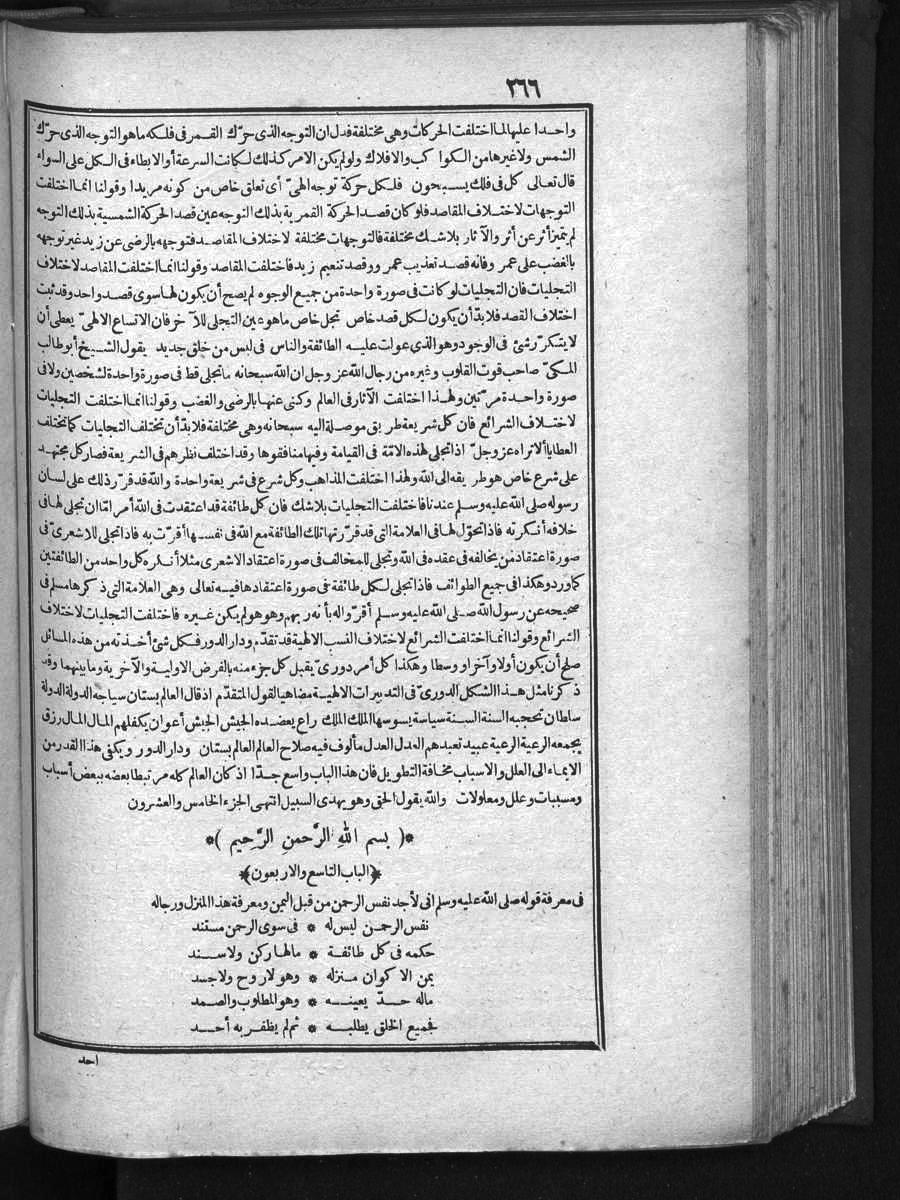 ٣٦٦
واحدا عليها لما اختلفت الحركات وهى مختلفة فدل ان التوجه الذى حرّك القمر فى فلكه ما هو التوجه الذى حرّك
الشمس ولا غيرها من الكواكب والافلاك ولو لم يكن الامر كذلك لكانت السرعة أو الابطاء فى الكل على السواء
قال تعالى كل فى فلك يسبحون فلكل حركة توجه الهىّ أى تعلق خاص من كونه مريدا وقولنا انما اختلفت
التوجهات لاختلاف المقاصد فلو كان قصد الحركة القمرية بذلك التوجه عين قصد الحركة الشمسية بذلك التوجه
لم يتميز أثر عن أثر والآثار بلا شك مختلفة فالتوجهات مختلفة لاختلاف المقاصد فتوجهه بالرضى عن زيد غير توجهه
بالغضب على عمرو فانه قصد تعذيب عمرو وقصد تنعيم زيد فاختلفت المقاصد وقولنا انما اختلفت المقاصد لاختلاف
التجليات فان التجليات لو كانت فى صورة واحدة من جميع الوجوه لم يصح أن يكون لها سوى قصد واحد وقد ثبت
اختلاف القصد فلا بدّ أن يكون لكل قصد خاص تجل خاص ما هو عين التجلى للآخر فان الاتساع الالهىّ يعطى أن
لا يتكرّر شئ فى الوجود وهو الذى عولت عليه الطائفة والناس فى لبس من خلق جديد يقول الشيخ أبو طالب
المكىّ صاحب قوت القلوب وغيره من رجال الله عز وجل ان الله سبحانه ما تجلى قط فى صورة واحدة لشخصين ولا فى
صورة واحدة مرّتين ولهذا اختلفت الآثار فى العالم وكنى عنها بالرضى والغضب وقولنا انما اختلفت التجليات
لاختلاف الشرائع فان كل شريعة طريق موصلة اليه سبحانه وهى مختلفة فلا بدّ أن تختلف التجليات كما تختلف
العطايا ألا تراه عز وجلّ اذا تجلى لهذه الامّة فى القيامة وفيها منافقوها وقد اختلف نظرهم فى الشريعة فصار كل مجتهد
على شرع خاص هو طريقه الى الله ولهذا اختلفت المذاهب وكل شرع فى شريعة واحدة والله قد قرّر ذلك على لسان
رسوله صلى الله عليه وسلم عندنا فاختلفت التجليات بلا شك فان كل طائفة قد اعتقدت فى الله أمر امّا ان تجلى لها فى
خلافه أنكرته فاذا تحوّل لها فى العلامة التى قد قرّرتها تلك الطائفة مع الله فى نفسها أقرّت به فاذا تجلى للاشعرىّ فى
صورة اعتقاد من يخالفه فى عقده فى الله وتجلى للمخالف فى صورة اعتقاد الاشعرى مثلا أنكره كل واحد من الطائفتين
كما ورد وهكذا فى جميع الطوائف فاذا تجلى لكل طائفة فى صورة اعتقادها فيه تعالى وهى العلامة التى ذكرها مسلم فى
صحيحه عن رسول الله صلى الله عليه وسلم أقرّوا له بأنه ربهم وهو هو لم يكن غيره فاختلفت التجليات لاختلاف
الشرائع وقولنا انما اختلفت الشرائع لاختلاف النسب الالهية قد تقدّم ودار الدور فكل شئ أخذته من هذه المسائل
صلح أن يكون أولا وآخرا ووسطا وهكذا كل أمر دورىّ يقبل كل جزء منه بالفرض الاولية والآخرية وما بينهما وقد
ذكرنا مثل هذا الشكل الدورىّ فى التدبيرات الالهية مضاهيا لقول المتقدّم اذ قال العالم بستان سياجه الدولة الدولة
سلطان تحجبه السنة السنة سياسة يسوسها الملك الملك راع يعضده الجيش الجيش أعوان يكفلهم المال المال رزق
يجمعه الرعية الرعية عبيد تعبدهم العدل العدل مألوف فيه صلاح العالم العالم بستان ودار الدور ويكفى هذا القدر من
الايماء الى العلل والاسباب مخافة التطويل فان هذا الباب واسع جدّا اذ كان العالم كله مرتبطا بعضه ببعض أسباب
ومسببات وعلل ومعلولات والله يقول الحق وهو يهدى السبيل انتهى الجزء الخامس والعشرون
*( بسم الله الرَّحمن الرَّحيم )*
﴿الباب التاسع والاربعون﴾
فى معرفة قوله صلى الله عليه وسلم انى لأجد نفس الرحمن من قبل اليمن ومعرفة هذا المنزل ورجاله
نفس الرحمن ليس له * فى سوى الرحمن مستند
حكمه فى كل طائفة * ما لها ركن ولا سند
يمن الاكوان منزله * وهو لا روح ولا جسد
ماله حدّ يعينه * وهو المطلوب والصمد
فجميع الخلق يطلبه * ثم لم يظفر به أحد
احد